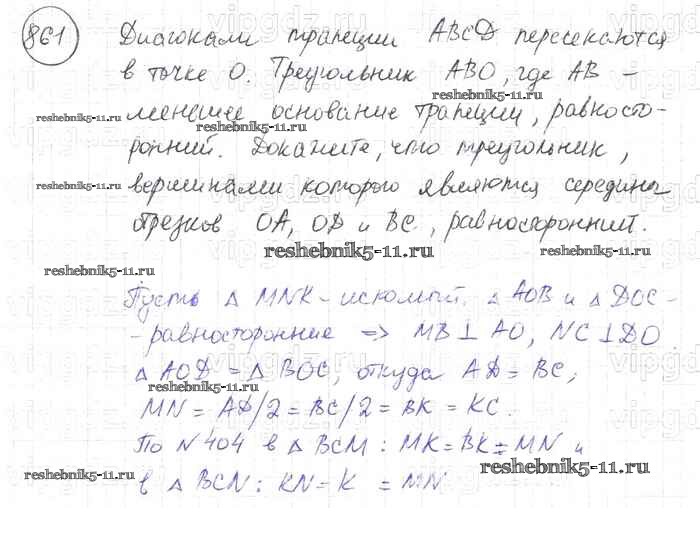 861
Диагонали трапеции ABCD пересекаются
в точке O. Треугольник ABO, где AB –
меньшее основание трапеции, равносто-
ронний. Докажите, что треугольник,
вершинами которого являются середины
отрезков OA, OD и BC, равносторонний.
Пусть △ MNK – искомый. △ AOB и △ DOC –
– равносторонние => MB ⊥ AO, NC ⊥ DO
△ AOD = △ BOC, откуда AD = BC,
MN = AD/2 = BC/2 = BK = KC.
По N 404 в △ BCM : MK = BK = MN и
в △ BCN : KN = K = MN
reshebnik5-11.ru
reshebnik5-11.ru
reshebnik5-11.ru
reshebnik5-11.ru
reshebnik5-11.ru
reshebnik5-11.ru
reshebnik5-11.ru
reshebnik5-11.ru